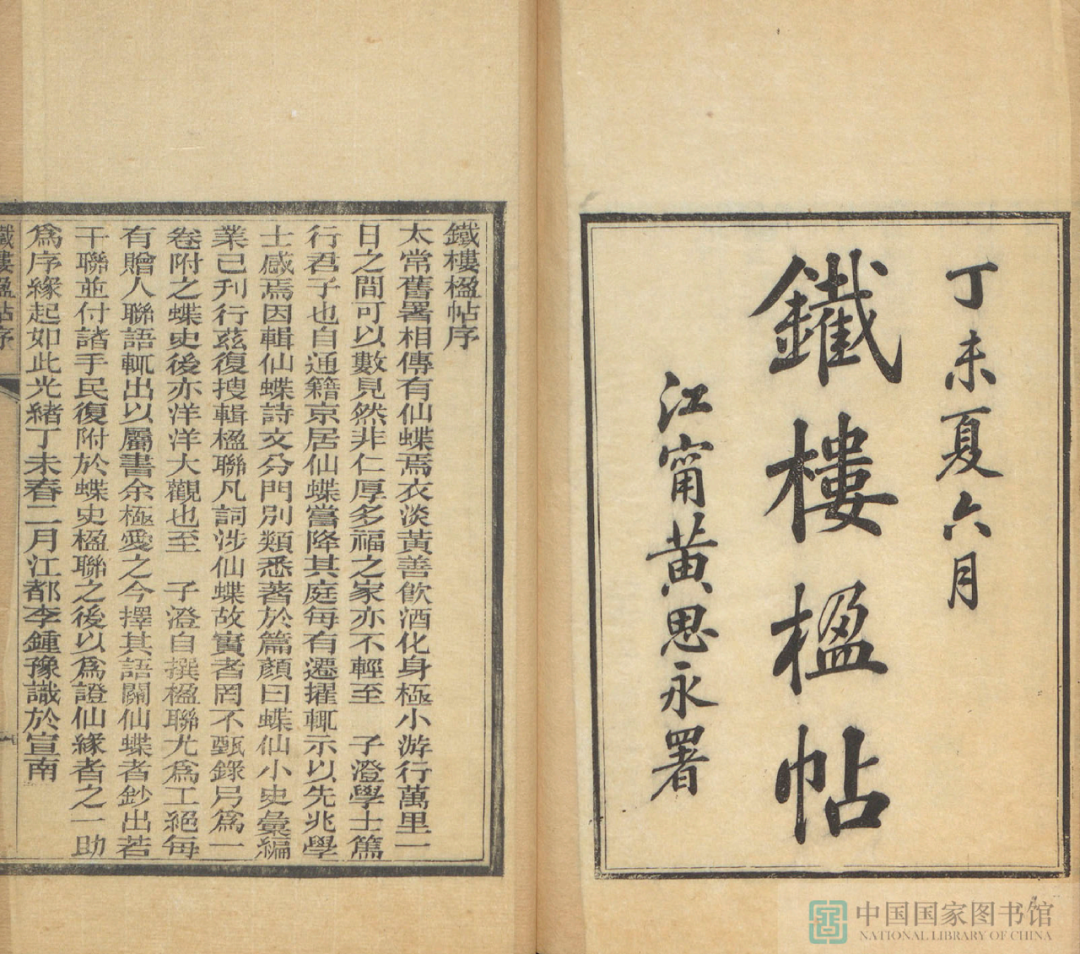 丁未夏六月
鐵樓楹帖
江甯黃思永署
鐵樓楹帖序
太常舊署相傳有仙蝶焉衣淡黃善飮酒化身極小游行萬里一
日之間可以數見然非仁厚多福之家亦不輕至 子澄學士篤
行君子也自通籍京居仙蝶嘗降其庭每有遷擢輒示以先兆學
士感焉因輯仙蝶詩文分門別類悉著於篇顏曰蝶仙小史彙編
業已刊行茲復搜輯楹聯凡詞涉仙蝶故實者罔不甄錄弓爲一
卷附之蝶史後亦洋洋大觀也至 子澄自撰楹聯尤爲工絕每
有贈人聯語輒出以屬書余極愛之今擇其語關仙蝶者鈔出若
干聯並付諸手民復附於蝶史楹聯之後以爲證仙緣者之一助
爲序緣起如此光緒丁未春二月江都李鍾豫識於宣南
鐵樓楹帖序
一
中国国家图书馆
NATIONAL LIBRARY OF CHINA